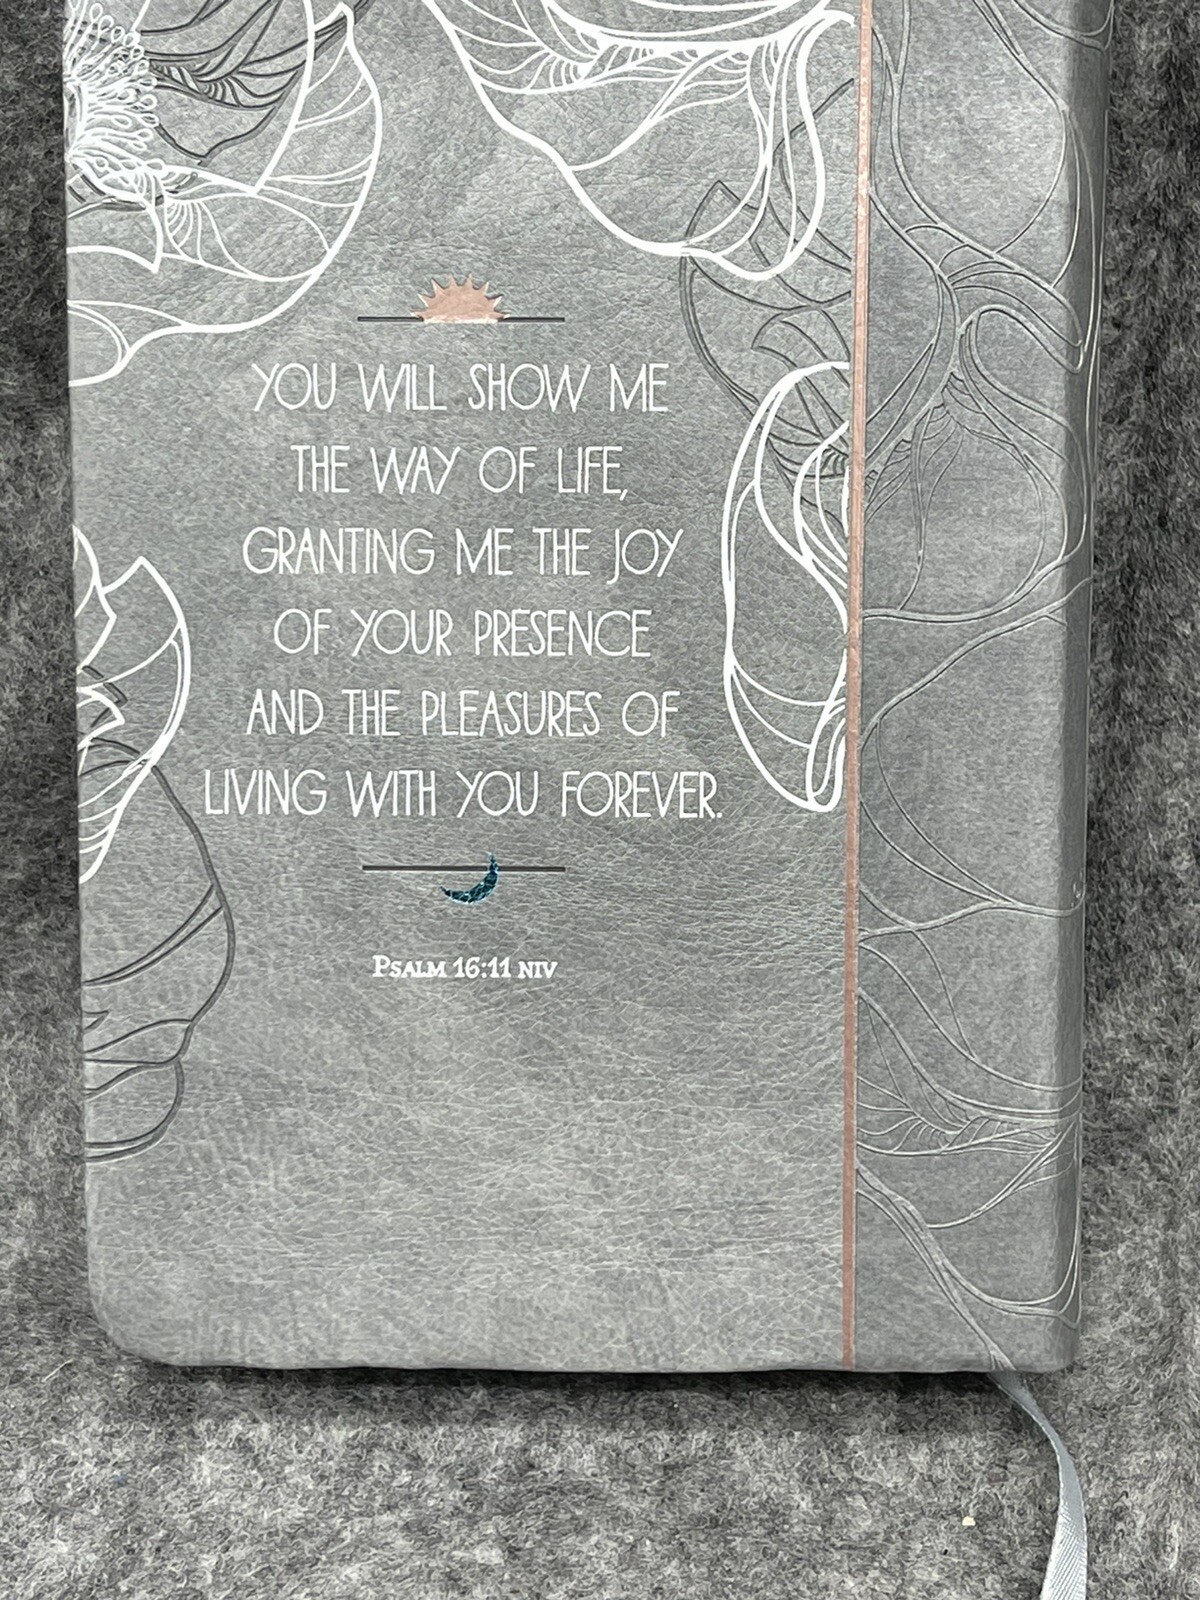 YOU WILL SHOW ME
THE WAY OF LIFE,
GRANTING ME THE JOY
OF YOUR PRESENCE
AND THE PLEASURES OF
LIVING WITH YOU FOREVER.
PSALM 16:11 NIV